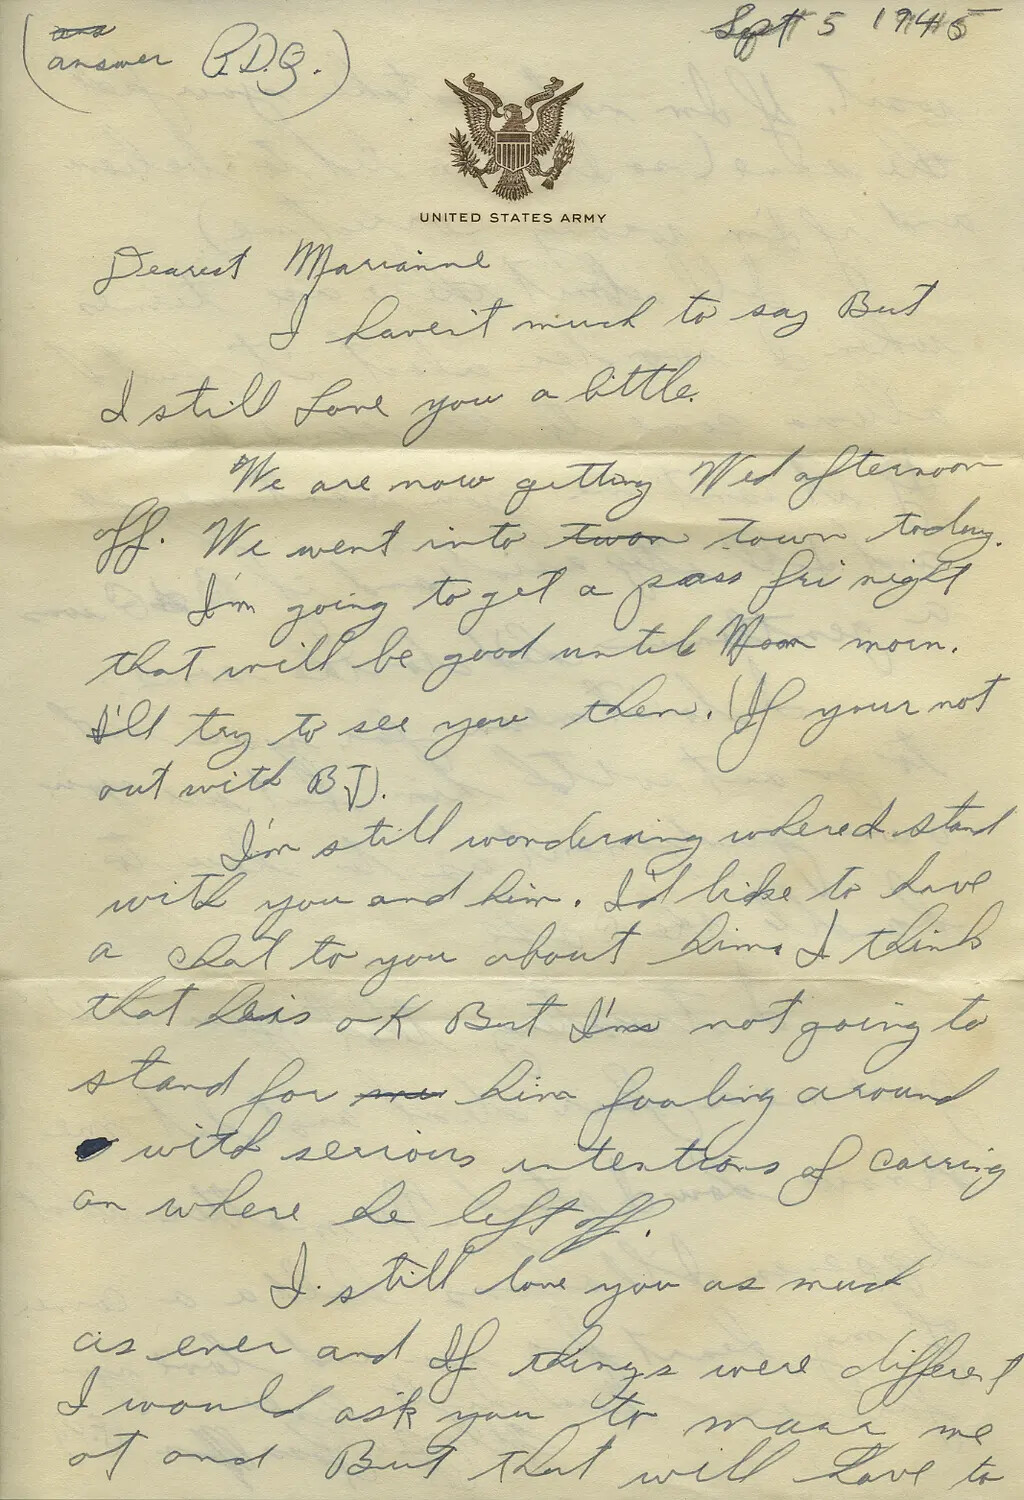 (~~ans~~ Sept 5 1945
answer P.D.Q.)
UNITED STATES ARMY
Dearest Marianne
I haven't much to say But
I still Love you a little.
We are now getting Wed afternoon
off. We went into ~~twon~~ town today.
I'm going to get a pass fri night
that will be good until Mon morn.
I'll try to see you then. (If your not
out with BJ).
I'm still wondering where I stand
with you and him. I'd like to have
a chat to you about him. I think
that he is OK But I'm not going to
stand for ~~me~~ him fooling around
with serious intentions of carring
on where he left off.
I still love you as much
as ever and If things were different
I would ask you to me
at and But that will have to